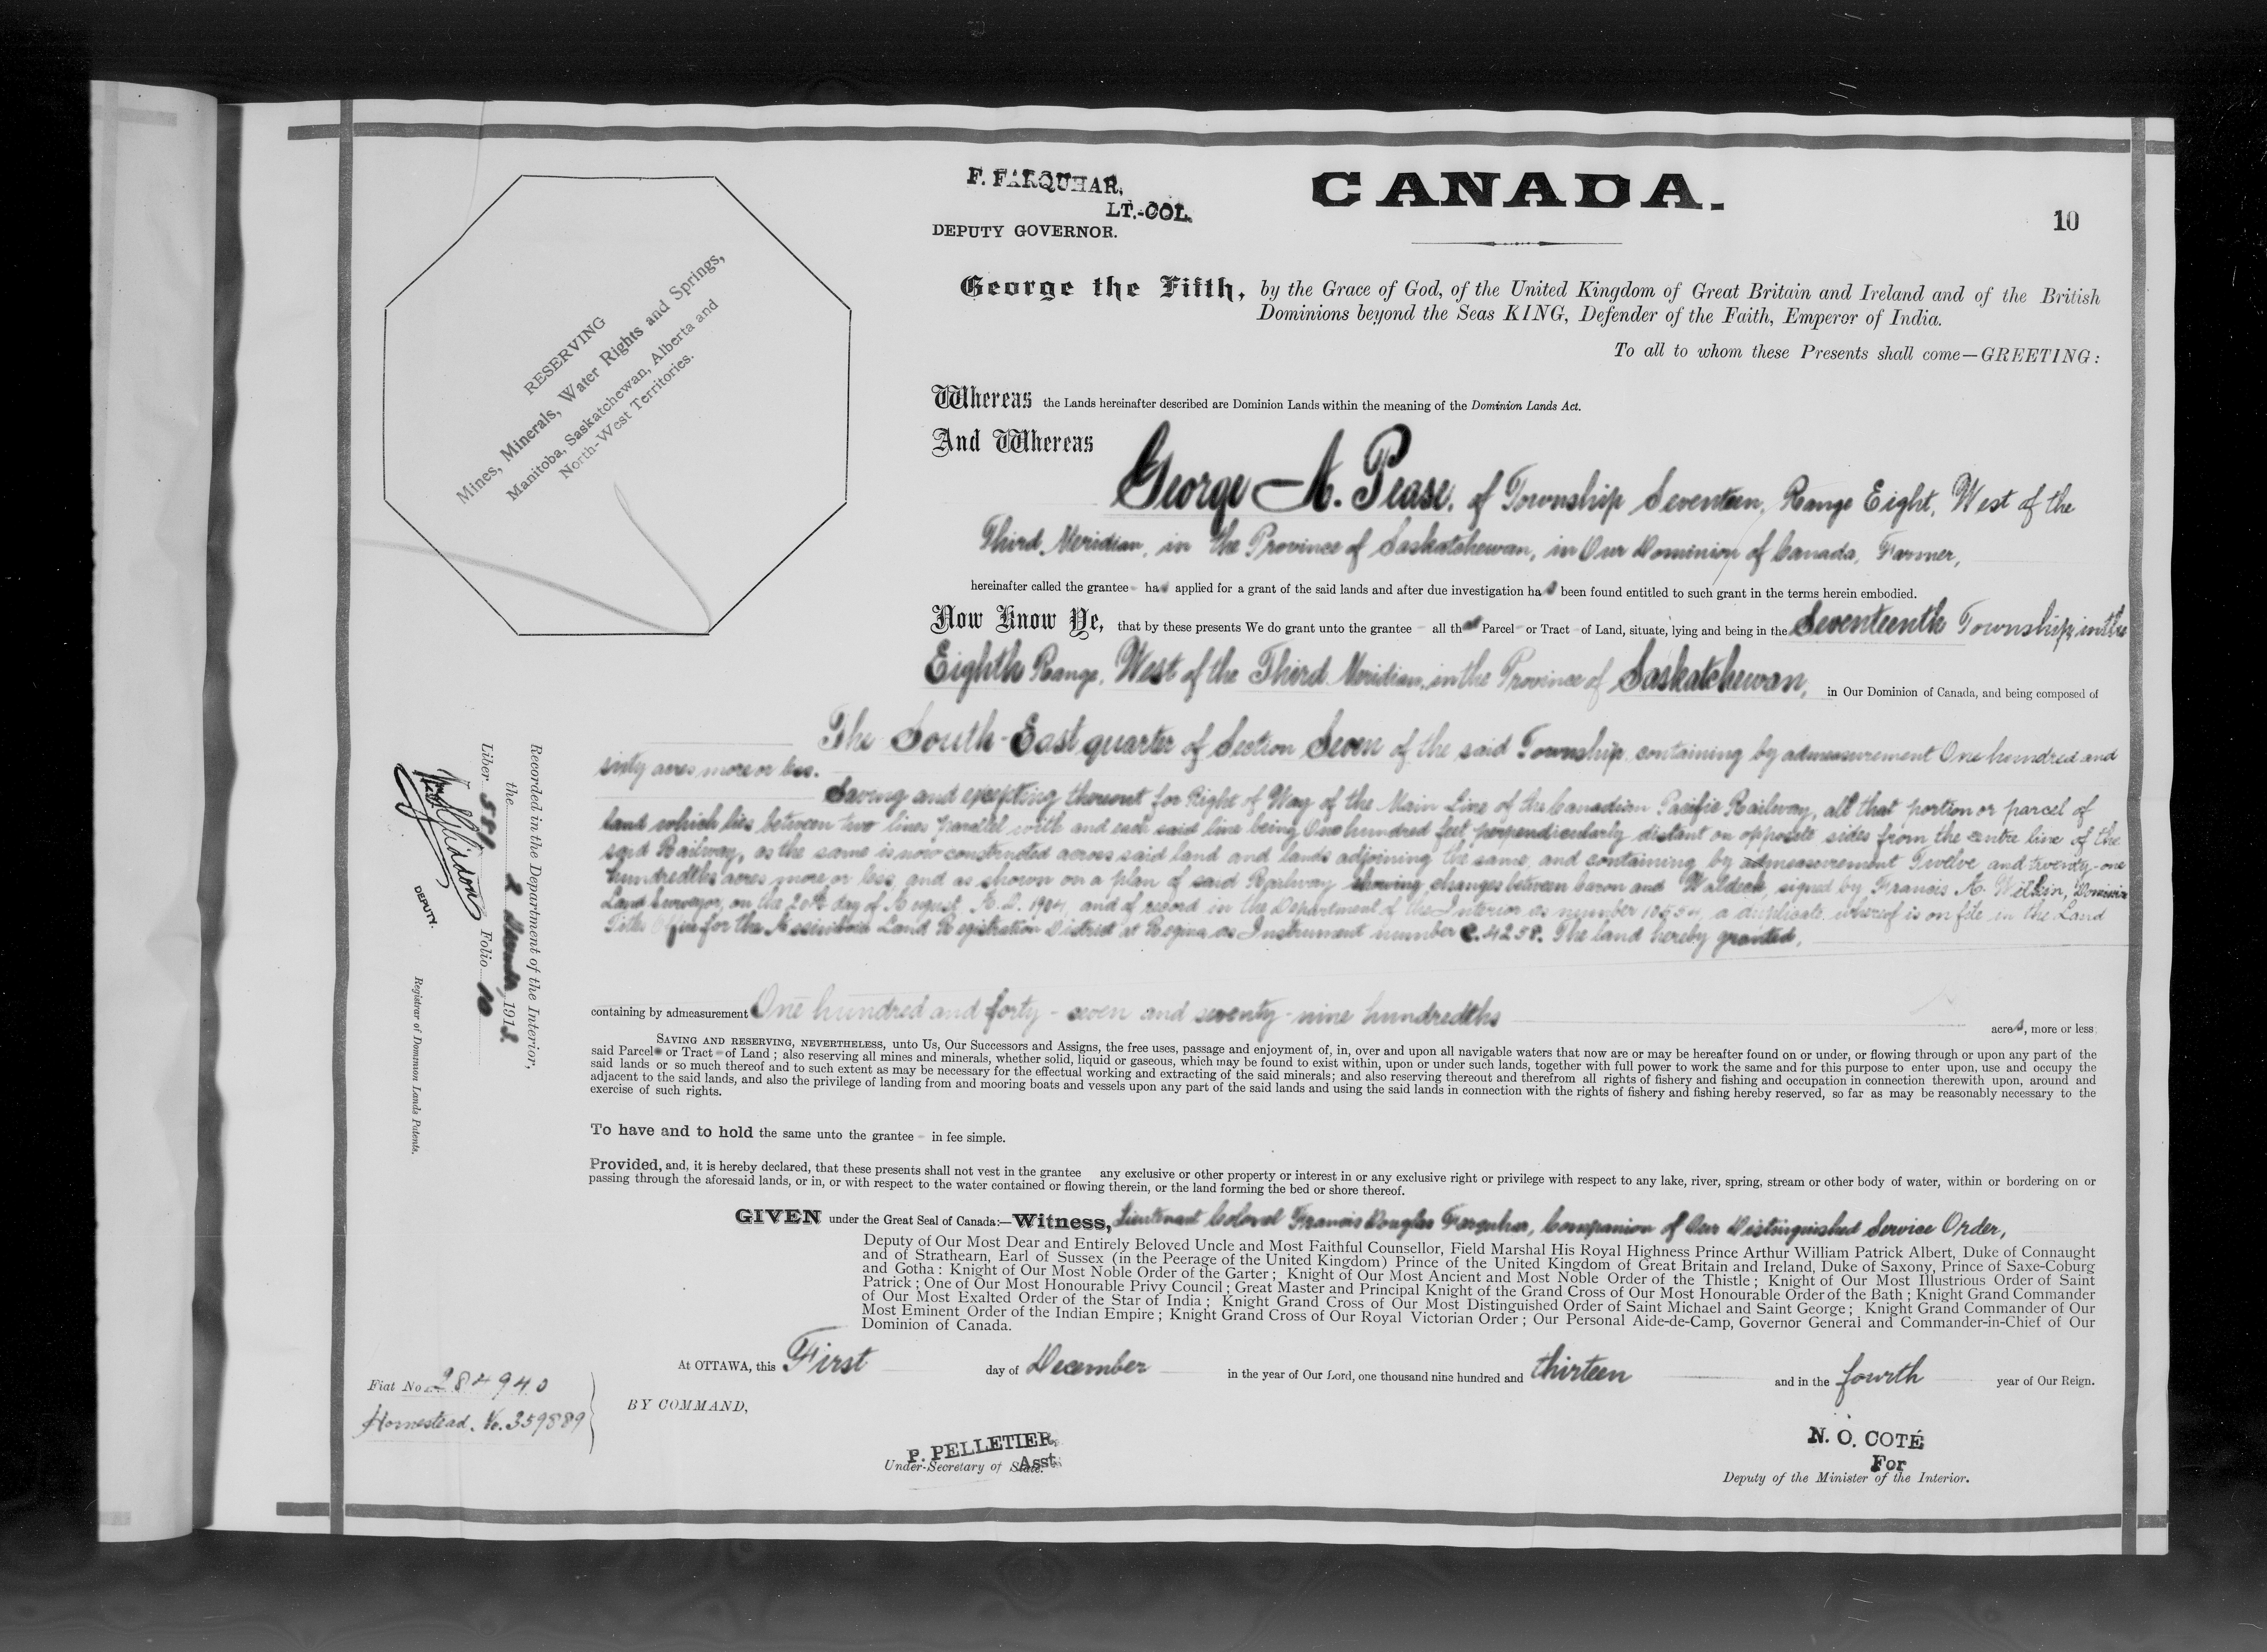 F. FARQUHAR,
LT.-COL.
DEPUTY GOVERNOR.
CANADA.
10
George the Fifth, by the Grace of God, of the United Kingdom of Great Britain and Ireland and of the British
Dominions beyond the Seas KING, Defender of the Faith, Emperor of India.
To all to whom these Presents shall come—GREETING:
RESERVING
Mines, Minerals, Water Rights and Springs,
Manitoba, Saskatchewan, Alberta and
North-West Territories.
Whereas the Lands hereinafter described are Dominion Lands within the meaning of the Dominion Lands Act.
And Whereas
George A. Pease, of Township Seventeen, Range Eight, West of the
Third Meridian, in the Province of Saskatchewan, in Our Dominion of Canada, Farmer,
hereinafter called the grantee has applied for a grant of the said lands and after due investigation has been found entitled to such grant in the terms herein embodied.
Now Know Ye, that by these presents We do grant unto the grantee all that Parcel or Tract of Land, situate, lying and being in the Seventeenth Township, in the
Eighth Range, West of the Third Meridian, in the Province of Saskatchewan, in Our Dominion of Canada, and being composed of
The South-East quarter of Section Seven of the said Township, containing by admeasurement One hundred and
sixty acres more or less.
Saving and excepting thereout for Right of Way of the Main Line of the Canadian Pacific Railway, all that portion or parcel of
land which lies between two lines parallel with and each said line being One hundred feet perpendicularly distant on opposite sides from the centre line of the
said Railway, as the same is now constructed across said land and lands adjoining the same, and containing by admeasurement Twelve and twenty-one
hundredths acres more or less, and as shown on a plan of said Railway showing changes between Caron and Waldeck, signed by Francis A. Wilkin, Dominion
Land Surveyor, on the 20th day of August, A.D. 1904, and of record in the Department of the Interior as number a duplicate whereof is on file in the Land
Titles Office for the Assiniboia Land Registration District at Regina as Instrument number C. 4258. The land hereby granted,
containing by admeasurement One hundred and forty-seven and seventy-nine hundredths acres, more or less
SAVING AND RESERVING, NEVERTHELESS, unto Us, Our Successors and Assigns, the free uses, passage and enjoyment of, in, over and upon all navigable waters that now are or may be hereafter found on or under, or flowing through or upon any part of the
said Parcel or Tract of Land; also reserving all mines and minerals, whether solid, liquid or gaseous, which may be found to exist within, upon or under such lands, together with full power to work the same and for this purpose to enter upon, use and occupy the
said lands or so much thereof and to such extent as may be necessary for the effectual working and extracting of the said minerals; and also reserving thereout and therefrom all rights of fishery and fishing and occupation in connection therewith upon, around and
adjacent to the said lands, and also the privilege of landing from and mooring boats and vessels upon any part of the said lands and using the said lands in connection with the rights of fishery and fishing hereby reserved, so far as may be reasonably necessary to the
exercise of such rights.
To have and to hold the same unto the grantee in fee simple.
Provided, and, it is hereby declared, that these presents shall not vest in the grantee any exclusive or other property or interest in or any exclusive right or privilege with respect to any lake, river, spring, stream or other body of water, within or bordering on or
passing through the aforesaid lands, or in, or with respect to the water contained or flowing therein, or the land forming the bed or shore thereof.
GIVEN under the Great Seal of Canada:—Witness, Lieutenant Colonel Francis Douglas Farquhar, Companion of Our Distinguished Service Order,
Deputy of Our Most Dear and Entirely Beloved Uncle and Most Faithful Counsellor, Field Marshal His Royal Highness Prince Arthur William Patrick Albert, Duke of Connaught
and of Strathearn, Earl of Sussex (in the Peerage of the United Kingdom) Prince of the United Kingdom of Great Britain and Ireland, Duke of Saxony, Prince of Saxe-Coburg
and Gotha: Knight of Our Most Noble Order of the Garter; Knight of Our Most Ancient and Most Noble Order of the Thistle; Knight of Our Most Illustrious Order of Saint
Patrick; One of Our Most Honourable Privy Council; Great Master and Principal Knight of the Grand Cross of Our Most Honourable Order of the Bath; Knight Grand Commander
of Our Most Exalted Order of the Star of India; Knight Grand Cross of Our Most Distinguished Order of Saint Michael and Saint George; Knight Grand Commander of Our
Most Eminent Order of the Indian Empire; Knight Grand Cross of Our Royal Victorian Order; Our Personal Aide-de-Camp, Governor General and Commander-in-Chief of Our
Dominion of Canada.
At OTTAWA, this First day of December in the year of Our Lord, one thousand nine hundred and thirteen and in the fourth year of Our Reign.
BY COMMAND,
P. PELLETIER,
Asst.
Under-Secretary of State.
N. O. COTÉ
For
Deputy of the Minister of the Interior.
Fiat No. 284940
Homestead. No. 359889
Recorded in the Department of the Interior,
the 2 December, 1913.
Liber Folio 10
DEPUTY.
Registrar of Dominion Lands Patents.